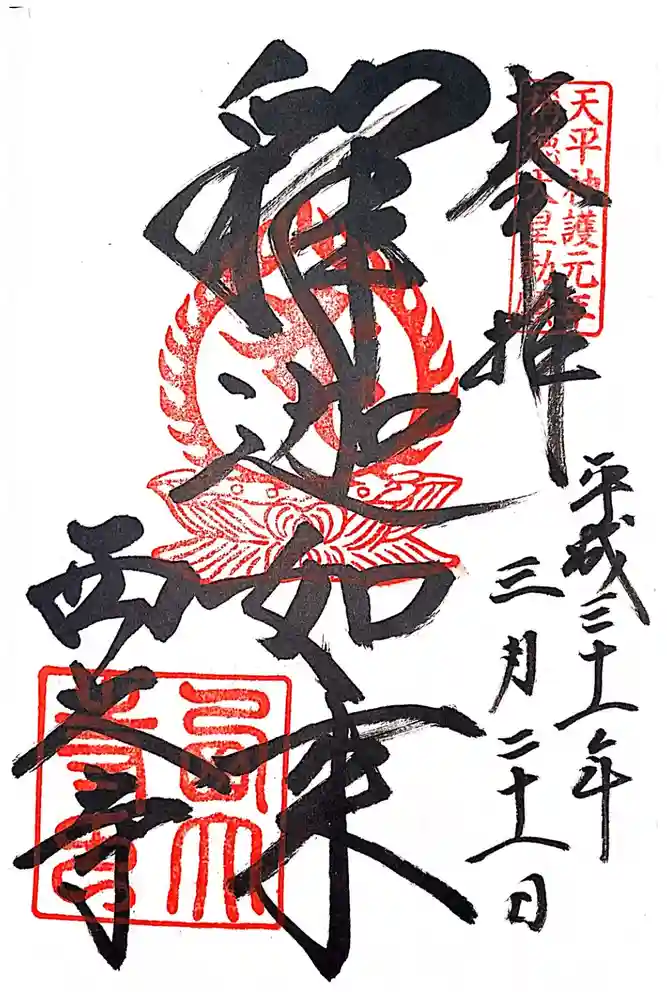 奉拝
天平神護元年
称徳天皇勅願
平成三十一年
三月二十一日
釈迦如来
西大寺